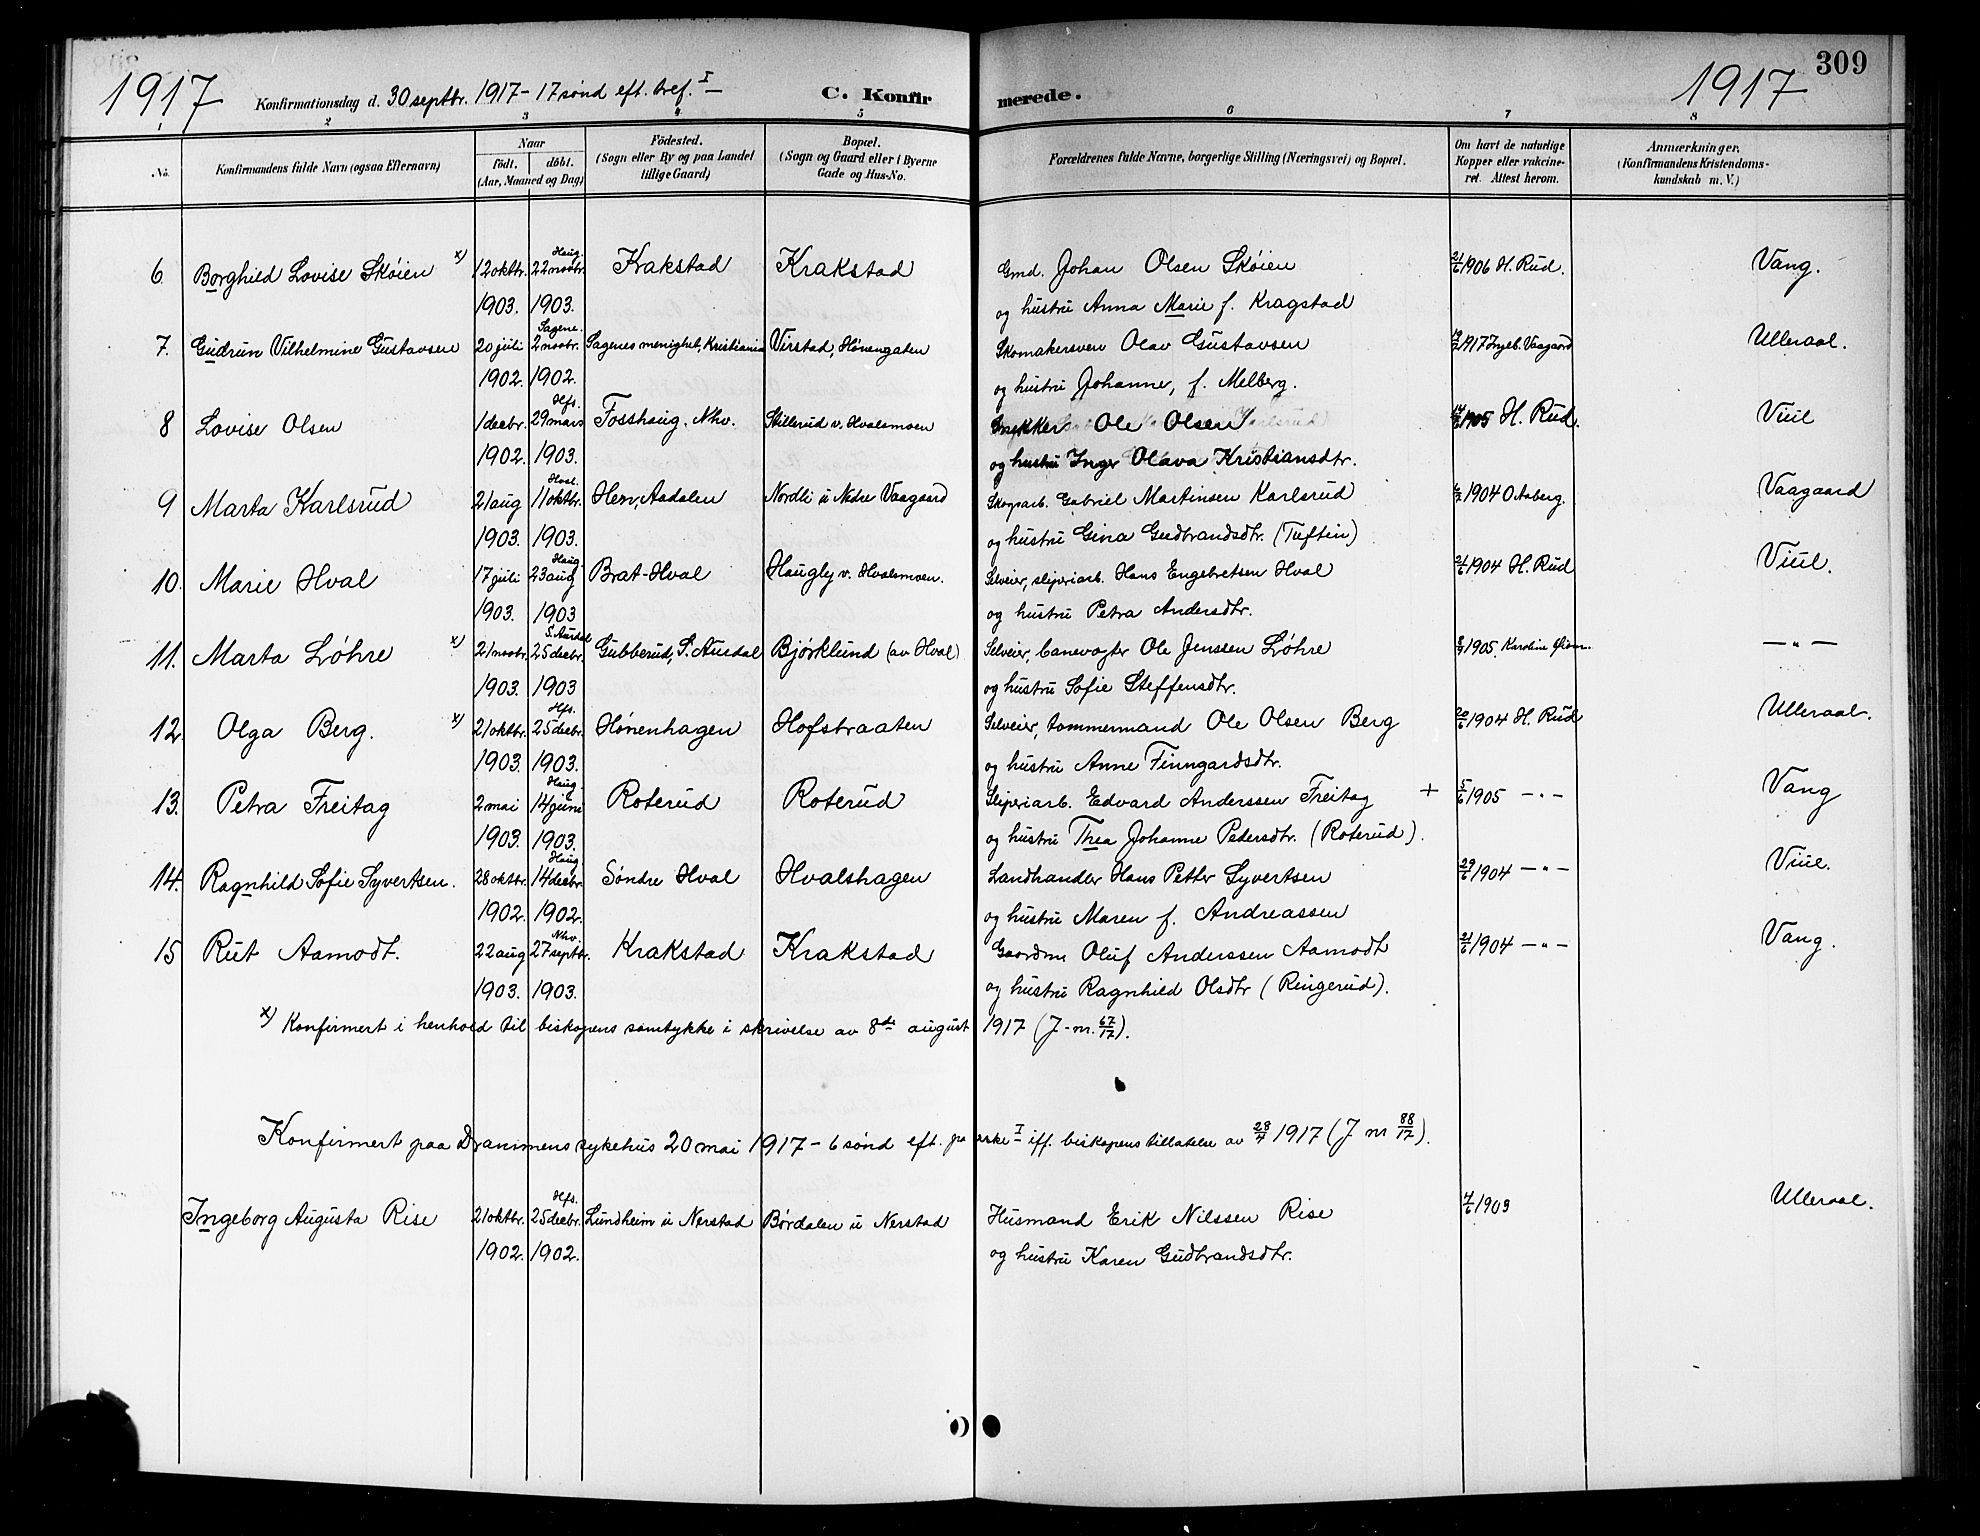 1917 Konfirmationsdag d. 30 septbr. 1917 - 17 sønd eft. tref. I - C. Konfirmerede. 1917 309
1 2 3 4 5 6 7 8
No. Konfirmandens fulde Navn (ogsaa Efternavn) Naar födt. döbt. (Aar, Maaned og Dag) Födested. (Sogn eller By og paa Landet tillige Gaard) Bopæl. (Sogn og Gaard eller i Byerne Gade og Hus-No. Forældrenes fulde Navne, borgerlige Stilling (Næringsvei) og Bopæl. Om havt de naturlige Kopper eller vakcineret. Attest herom. Anmærkninger. (Konfirmandens Kristendomskundskab m. V.)
6 Borghild Lovise Skøien x) 12 oktbr. Haug. 22 novbr. Krakstad Krakstad Gmd. Johan Olsen Skøien 21/6 1906 H. Rud. Vang.
1903. 1903. og hustru Anna Marie f. Kragstad
7. Gudrun Vilhelmine Gustavsen 20 juli Sagene. 2 novbr. Sagenes menighet, Kristiania Virstad, Hønengaten Skomakersven Olav Gustavsen 1917 Ingeb. Vaagaard Ulleraal.
1902. 1902. og hustru Johanne, f. Melberg.
8 Lovise Olsen 1 decbr. Hfs. 29 mars Fosshaug, Nhv. Stillerud v. Hvalsmoen Snekker Ole Olsen 1905 H. Rud. Viul
1902. 1903. og hustru Inger Olava Kristiansdtr.
9 Marta Karlsrud 21 aug Hval. 11 oktbr. Hen, Aadalen Nordli u Nedre Vaagaard Skogsarb. Gabriel Martinsen Karlsrud 1904 O Aaberg. Vaagaard
1903. 1903. og hustru Gina Gudbrandsdtr. (Tuftin)
10. Marie Hval 17 juli Haug. 23 aug Brat-Hval Haugly v. Hvalsmoen. Selveier, sliperiarb. Hans Engebretsen Hval 21/6 1904 H. Rud Viul.
1903. 1903 og hustru Petra Andersdtr.
11. Marta Løhre x) 21 novbr. S. Aurdal 25 decbr. Gubberud, S. Aurdal Bjørklund (av Hval) Selveier, banevogter Ole Jenssen Løhre 1905. Karoline — " —
1903. 1903 og hustru Sofie Steffensdtr.
12. Olga Berg. x) 21 oktbr. Hfs. 25 decbr. Hønenhagen Hofstraaten Selveier, tømmermand Ole Olsen Berg 20/6 1904 H. Rud Ulleraal.
1903. 1903. og hustru Anne Finngardsdtr.
13. Petra Freitag 2 mai Haug. 14 juni Roterud Roterud Sliperiarb. Edvard Anderssen Freitag + 5/6 1905 — " — Vang
1903. 1903. og hustru Thea Johanne Pedersdtr. (Roterud).
14. Ragnhild Sofie Syvertsen. 28 oktbr. Haug. 14 decbr. Søndre Hval Hvalshagen Landhandler Hans Petter Syvertsen 29/6 1904 — " — Viul.
1902. 1902. og hustru Maren f. Andreassen
15 Rut Aamodt. 22 aug Nhv. 27 septbr. Krakstad Krakstad Gaardm Oluf Anderssen Aamodt 21/6 1904 — " — Vang.
1903. 1903. og hustru Ragnhild Olsdtr (Ringerud).
x) Konfirmert i henhold til biskopens samtykke i skrivelse av 8de august 1917 (J-nr. 67/17).
Konfirmert paa Drammens sykehus 20 mai 1917 - 6 sønd eft. paaske I iff. biskopens tillatelse av 28/4 1917 (J nr 88/17).
Ingeborg Augusta Rise 21 oktbr. Hfs. 25 decbr. Lundheim u Nerstad Børdalen u Nerstad Husmand Erik Nilssen Rise 4/6 1903 Ulleraal.
1902. 1902. og hustru Karen Gudbrandsdtr.